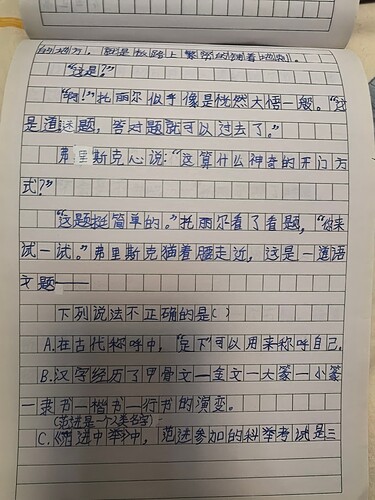 的地方。
"这是?"
"啊!"托丽尔似乎像是恍然大悟一般。"这
是道选题,答对题就可以过去了。"
弗里斯克心说:"这算什么神奇的开门方
式?"
"这题挺简单的。"托丽尔看了看题,"你来
试一试。"弗里斯克猫着腰走近,这是一道语
文题——
下列说法不正确的是( )
A.在古代称呼中,"足下"可以用来称呼自己.
B.汉字经历了甲骨文—金文—大篆—小篆
—隶书—楷书—行书的演变。
(范进是一个人类名字)
C.《范进中举》中,范进参加的科举考试是三